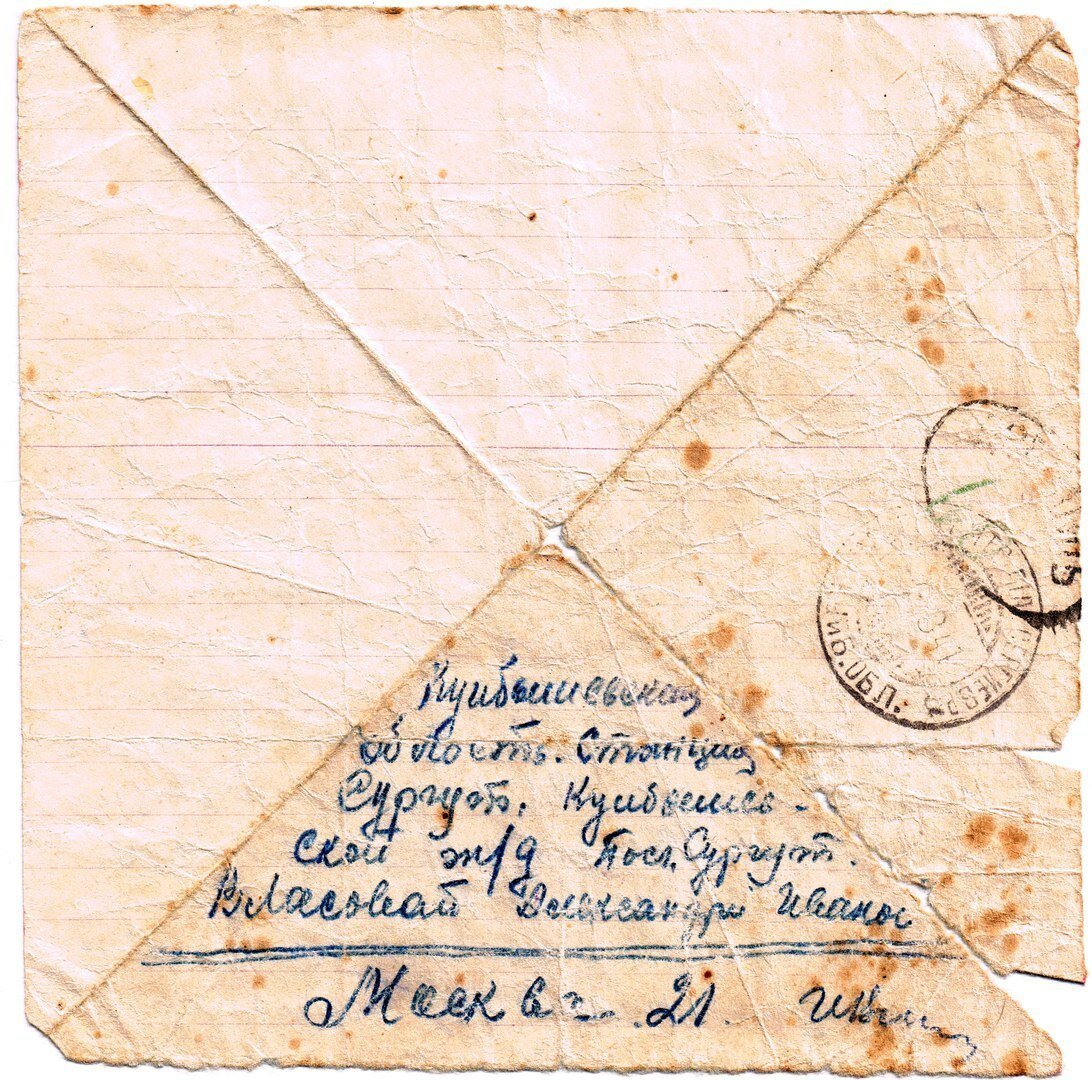 Куйбышевская
область. Станция
Сургут. Куйбышев-
ской ж/д Посл. Сургут.
Власовай Александри Ивано
Москва. 21.
ОБЛ.